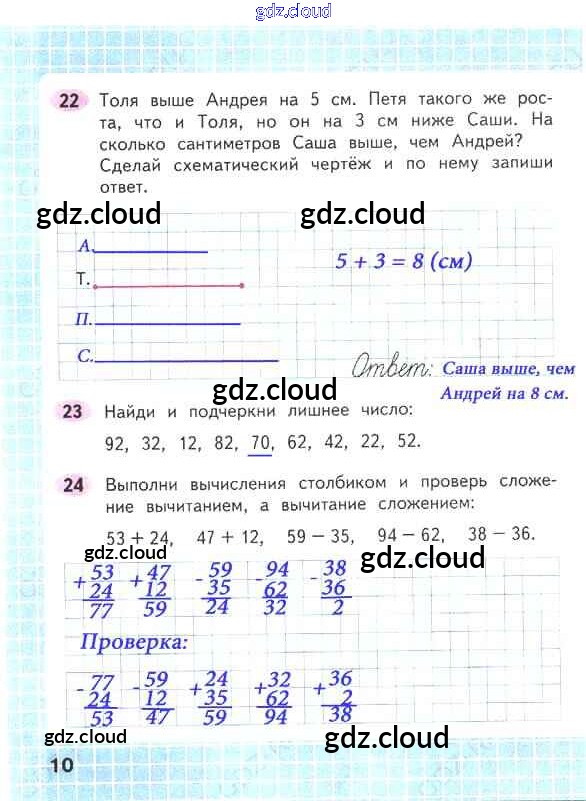 gdz.cloud
22 Толя выше Андрея на 5 см. Петя такого же рос-
та, что и Толя, но он на 3 см ниже Саши. На
сколько сантиметров Саша выше, чем Андрей?
Сделай схематический чертёж и по нему запиши
ответ.
gdz.cloud gdz.cloud
А.
5 + 3 = 8 (см)
Т.
П.
С.
Ответ: Саша выше, чем
Андрей на 8 см.
gdz.cloud
23 Найди и подчеркни лишнее число:
92, 32, 12, 82, 70, 62, 42, 22, 52.
24 Выполни вычисления столбиком и проверь сложе-
ние вычитанием, а вычитание сложением:
53 + 24, 47 + 12, 59 − 35, 94 − 62, 38 − 36.
gdz.cloud gdz.cloud
+53 +47 -59 -94 -38
24 12 35 62 36
77 59 24 32 2
Проверка:
-77 -59 +24 +32 +36
24 12 35 62 2
53 47 59 94 38
gdz.cloud gdz.cloud
10